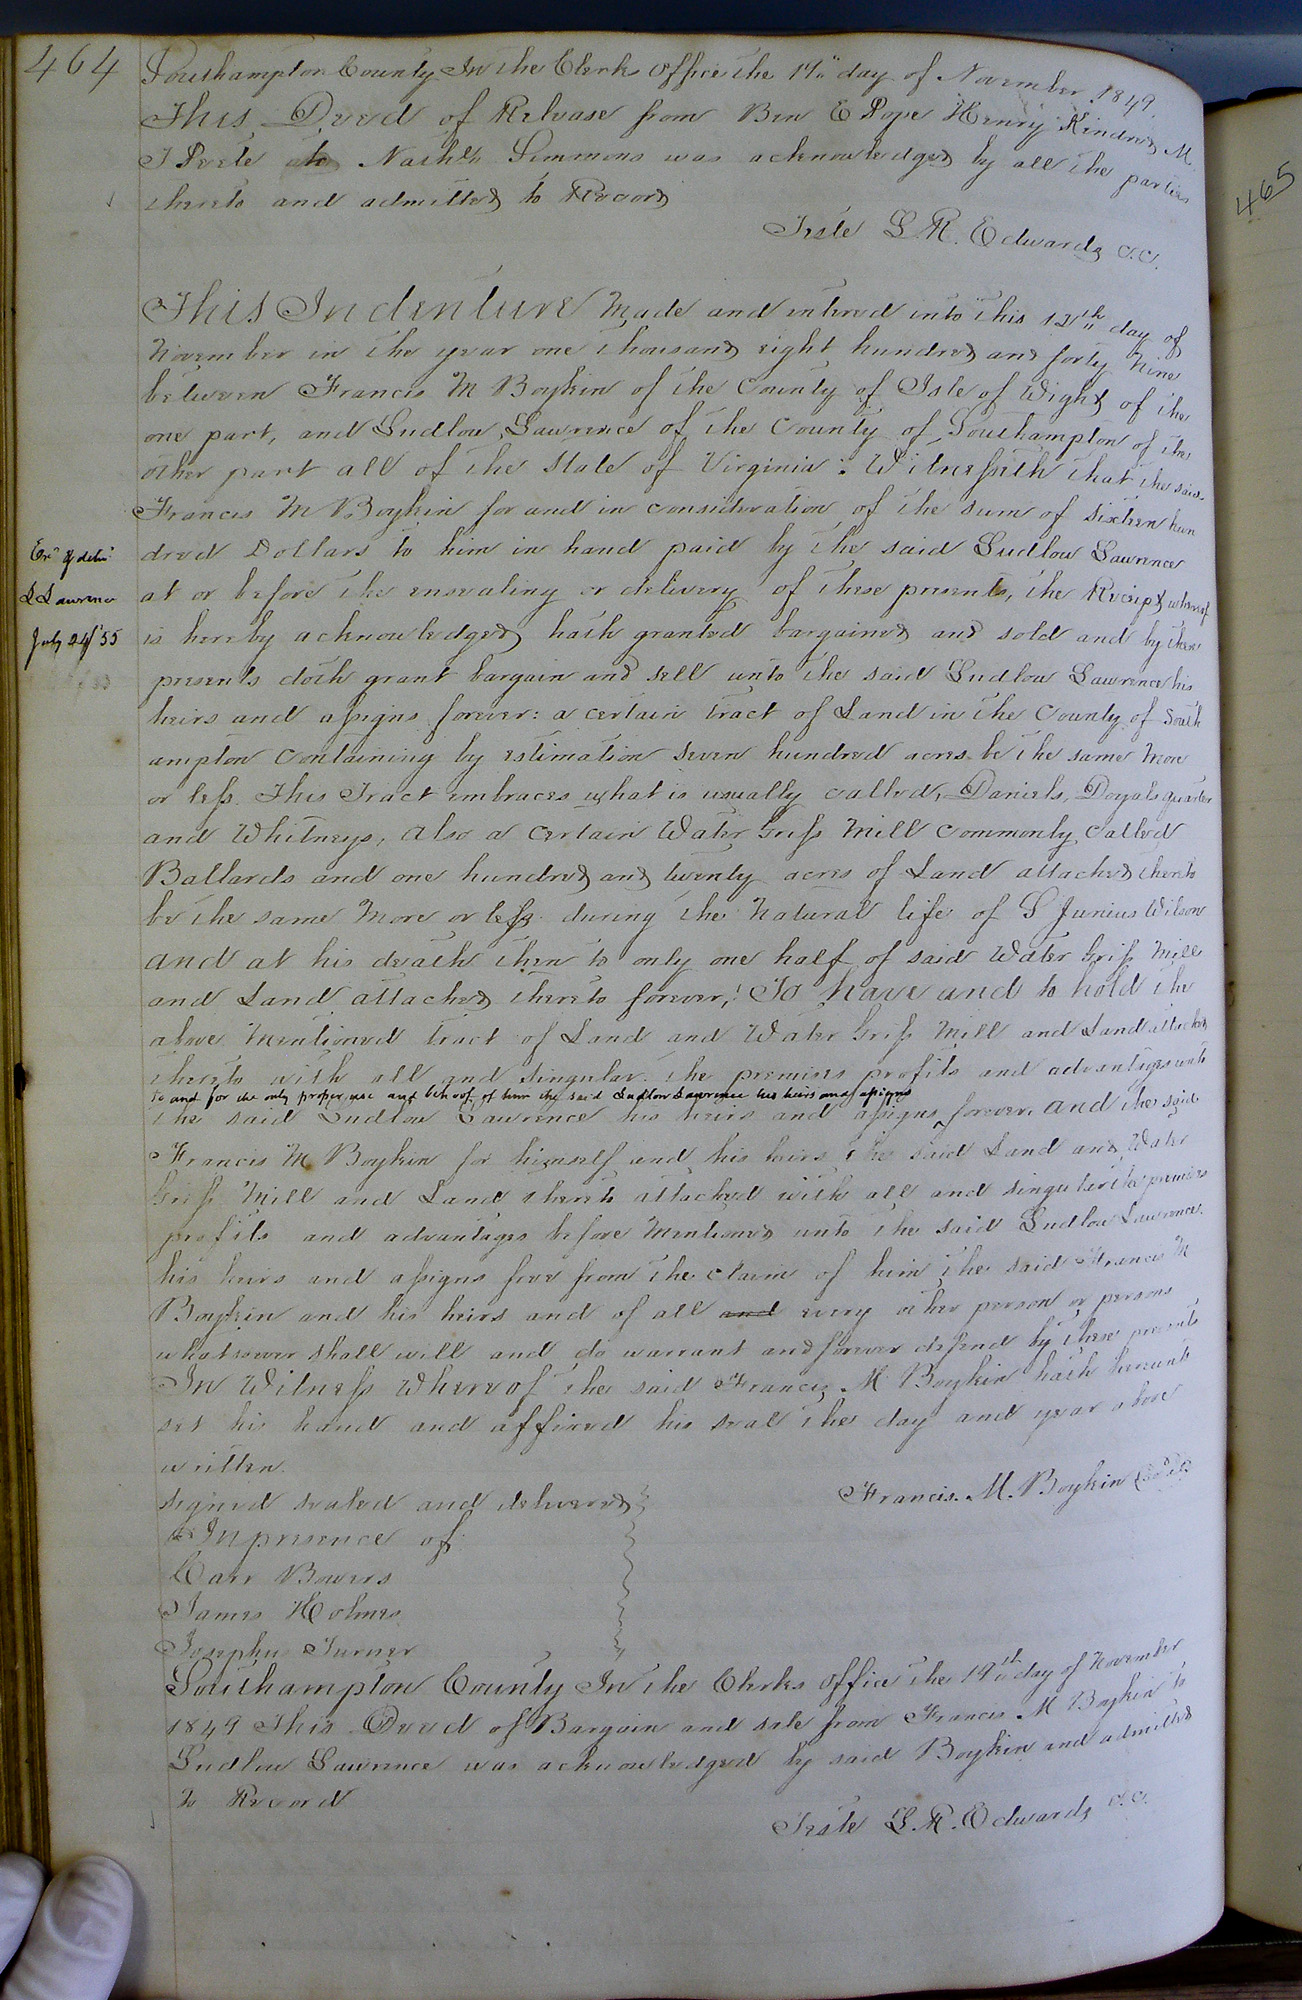 464
Southampton County In the Clerks Office the 19" day of November 1849.
This Deed of Release from Ben E Pope Henry Kindred M.
J Peete Nathl Simmons was acknowledged by all the parties
thereto and admitted to Record
Teste L. R. Edwards c.c.
This Indenture Made and entered into this 12th day of
November in the year one thousand eight hundred and forty Nine
between Francis M Boykin of the County of Isle of Wight of the
one part, and Ludlow Lawrence of the County of Southampton of the
other part all of the State of Virginia: Witnesseth that the said
Francis M Boykin for and in consideration of the sum of Sixteen hun
dred Dollars to him in hand paid by the said Ludlow Lawrence
at or before the ensealing or delivery of these presents, the Receipt whereof
is hereby acknowledged, hath granted bargained and sold and by these
presents doth grant bargain and sell unto the said Ludlow Lawrence his
heirs and assigns forever: a certain tract of Land in the County of South
ampton Containing by estimation Seven hundred acres be the same More
or less. This Tract embraces what is usually called, Daniels, Doyals quarter
and Whitneys, Also a certain Water Griss Mill Commonly Called
Ballards and one hundred and twenty acres of Land attached thereto
be the same More or less during the Natural life of S Junius Wilson
and at his death then to only one half of said Water Griss Mill
and Land attached thereto forever,! To have and to hold the
above Mentioned tract of Land and Water Griss Mill and Land attached
thereto with all and Singular the premises profits and advantages unto
to and for the only proper use and behoof of him the said Ludlow Lawrence his heirs and assigns
the said Ludlow Lawrence his heirs and assigns ^ forever. and the said
Francis M Boykin for himself and his heirs the said Land and Water
Griss Mill and Land thereto attached with all and singular the premises
profits and advantages before Mentioned unto the said Ludlow Lawrence
his heirs and assigns free from the claim of him the said Francis M
Boykin and his heirs and of all and every other person or persons
whatsoever shall will and do warrant and forever defend by these presents
In Witness Whereof the said Francis M Boykin hath hereunto
set his hand and affixed his seal the day and year above
written.
Francis. M. Boykin (Seal)
Signed sealed and delivered
In presence of
Carr Bowers
James Holmes
Josephus Turner
Southampton County In the Clerks Office the 19th day of November
1849 This Deed of Bargain and sale from Francis M Boykin to
Ludlow Lawrence was acknowledged by said Boykin and admitted
to Record
Teste L. R. Edwards c.c.
Exd & deld
L Lawrence
July 24/55
465